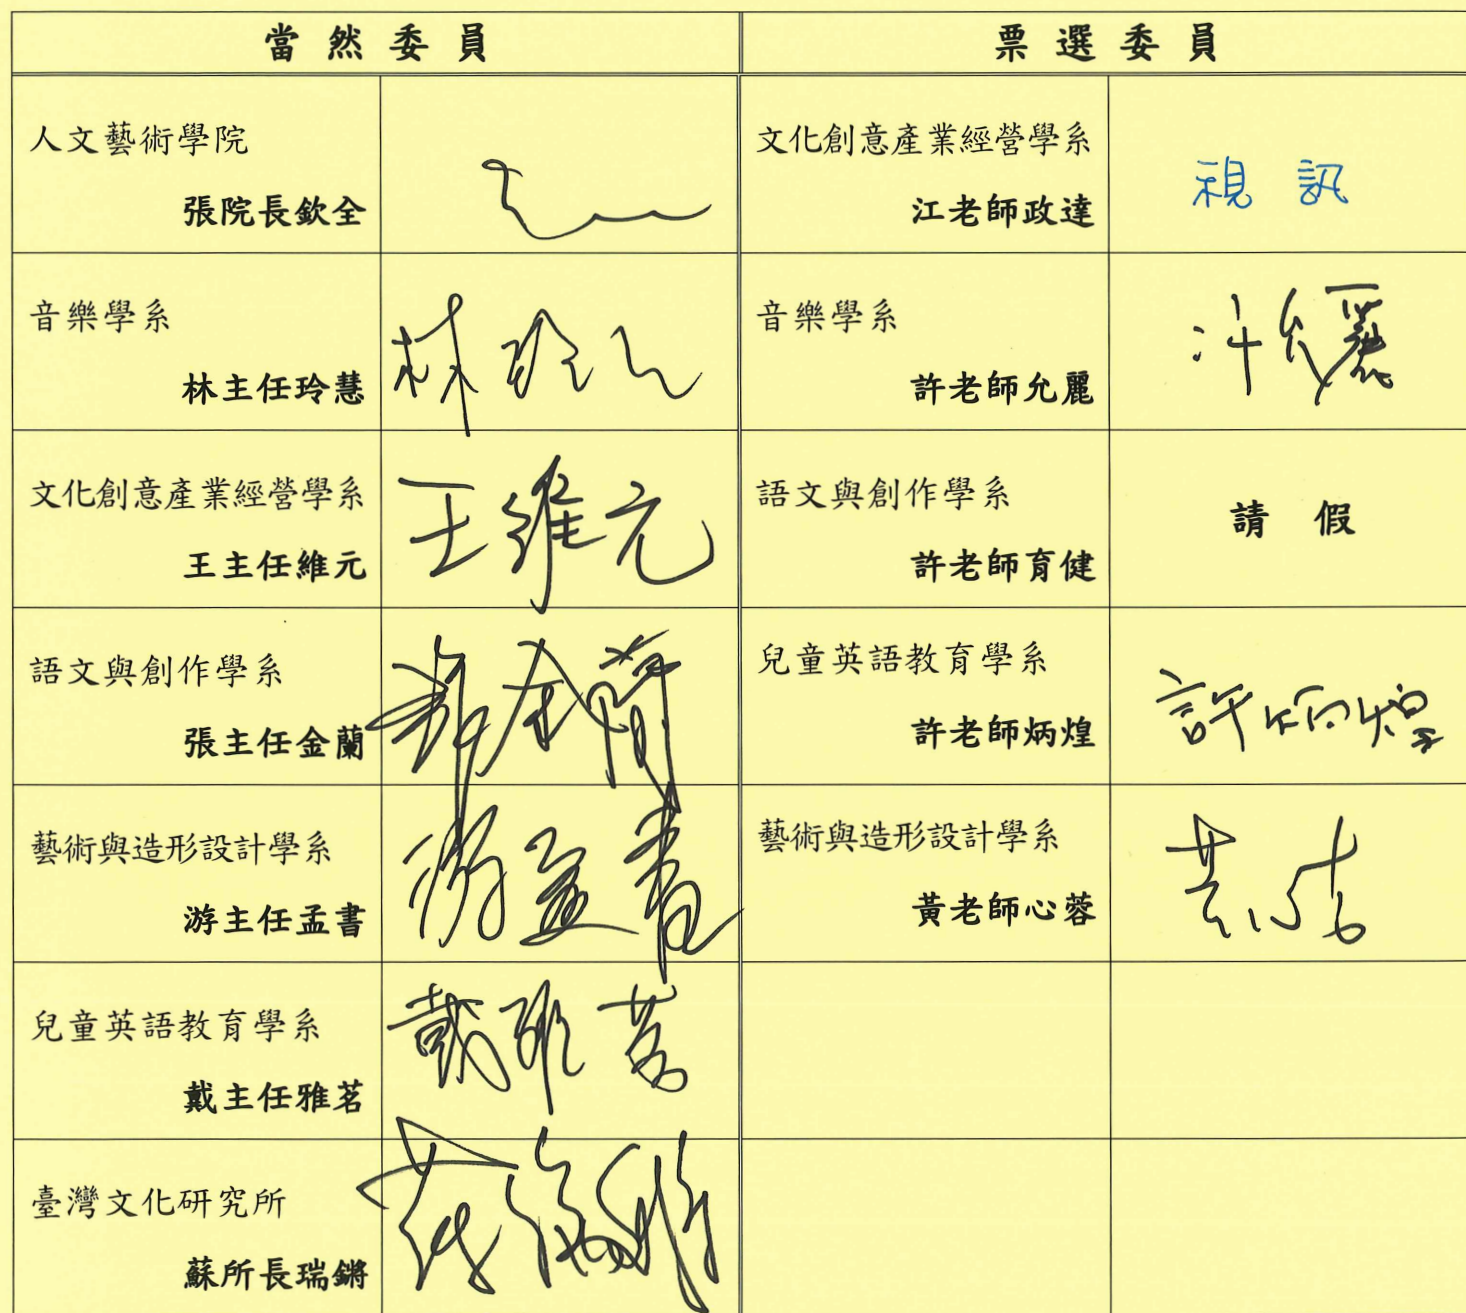 當然委員
票選委員
人文藝術學院
張院長欽全
文化創意產業經營學系
江老師政達
視訊
音樂學系
林主任玲慧
林玲
音樂學系
許老師允麗
許允麗
文化創意產業經營學系
王主任維元
王維元
語文與創作學系
許老師育健
請假
語文與創作學系
張主任金蘭
張金蘭
兒童英語教育學系
許老師炳煌
許炳煌
藝術與造形設計學系
游主任孟書
游孟書
藝術與造形設計學系
黃老師心蓉
黃心蓉
兒童英語教育學系
戴主任雅茗
戴雅茗
臺灣文化研究所
蘇所長瑞鏘